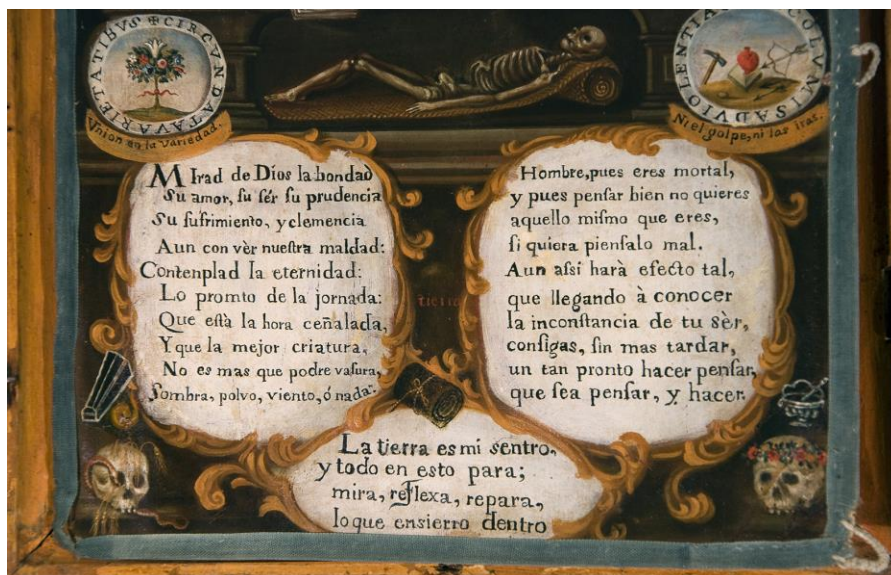 CIRCUNDATA VARIETATIBUS ✠
Union en la Variedad.
COLUMIS AD VIOLENTIA
Ni el golpe, ni las iras.
MIrad de Dios la bondad
Su amor, ſu ſér ſu prudencia
Su ſufrimiento, y clemencia
Aun con vèr nueſtra maldad:
Contenplad la eternidad:
Lo promto de la jornada:
Que eſtà la hora ceñalada,
Y que la mejor criatura,
No es mas que podre vaſura,
Sombra, polvo, viento, ó nada.
tierra
Hombre, pues eres mortal,
y pues penſar bien no quieres
aquello miſmo que eres,
ſi quiera pienſalo mal.
Aun aſsi harà efecto tal,
que llegando à conocer
la inconſtancia de tu sèr,
conſigas, ſin mas tardar,
un tan pronto hacer penſar,
que ſea penſar, y hacer.
La tierra es mi sentro,
y todo en esto para;
mira, reflexa, repara,
lo que ensierro dentro